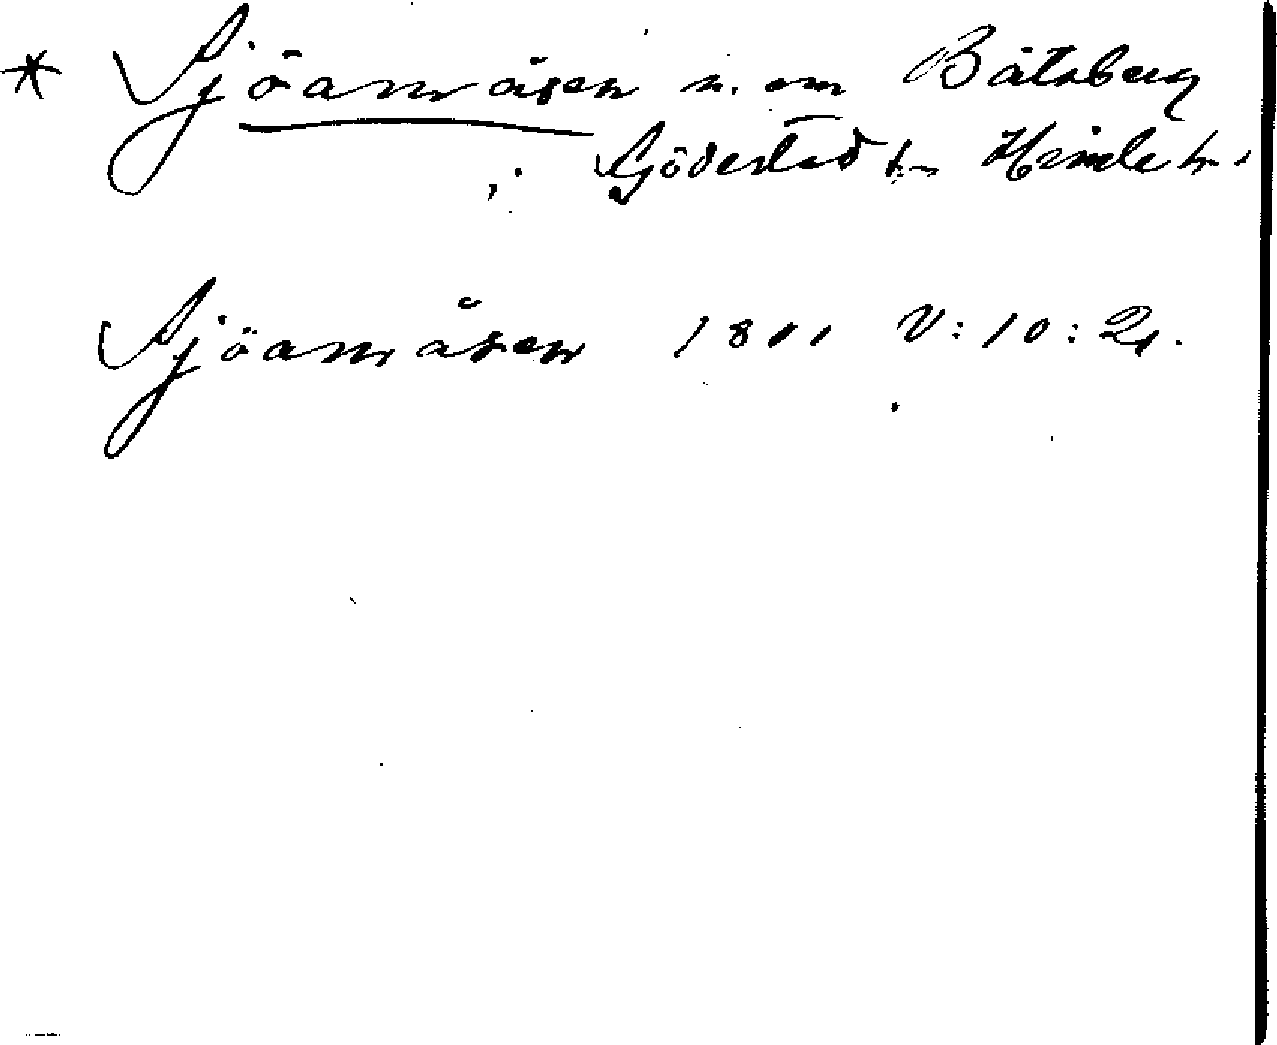 * Sjöamåsen n. om Båtsberg
i Gödestad sn Himle hd.
Sjöamåsen 1801 V:10:21.